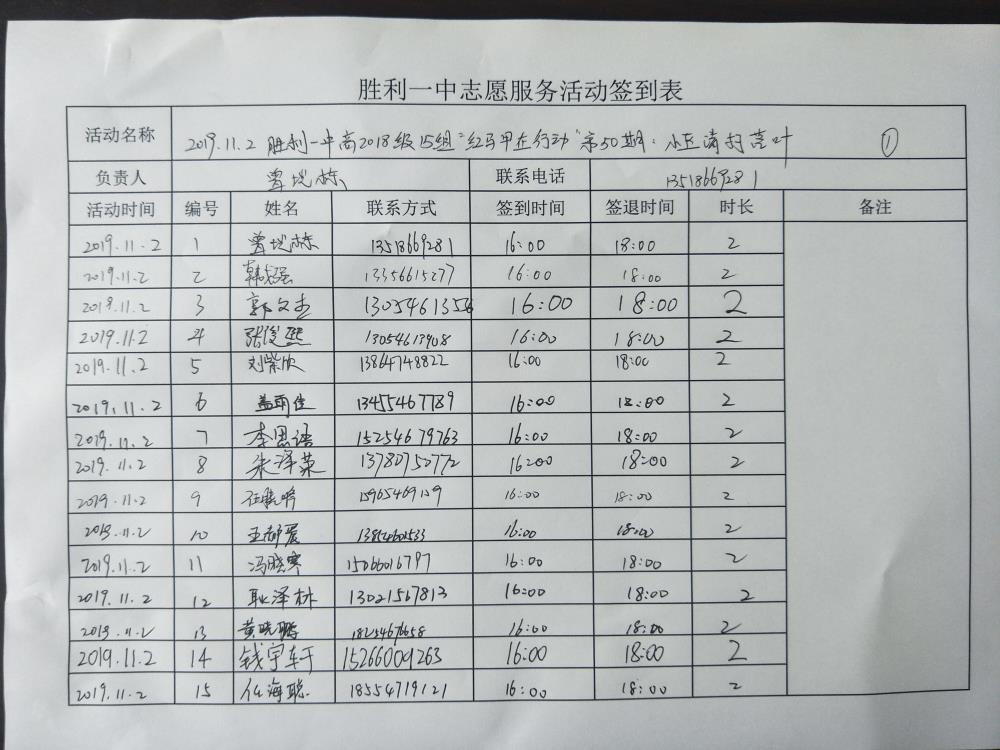 胜利一中志愿服务活动签到表
活动名称 2019.11.2 胜利一中高2018级15组"红马甲在行动"第50期：小区清扫落叶 ①
负责人 曾 栋 联系电话 13518669281
活动时间 编号 姓名 联系方式 签到时间 签退时间 时长 备注
2019.11.2 1 曾 栋 13518669281 16:00 18:00 2
2019.11.2 2 韩 强 13356615277 16:00 18:00 2
2019.11.2 3 郭文杰 13054613556 16:00 18:00 2
2019.11.2 4 张俊熙 13054613908 16:00 18:00 2
2019.11.2 5 刘紫欣 13864748822 16:00 18:00 2
2019.11.2 6 盖雨佳 13455467789 16:00 18:00 2
2019.11.2 7 李思语 15254679763 16:00 18:00 2
2019.11.2 8 朱泽荣 13780750772 16:00 18:00 2
2019.11.2 9 任 15965469159 16:00 18:00 2
2019.11.2 10 王 16:00 18:00 2
2019.11.2 11 冯晓寒 15066016797 16:00 18:00 2
2019.11.2 12 耿泽林 13021567813 16:00 18:00 2
2019.11.2 13 黄晓鹏 18254676658 16:00 18:00 2
2019.11.2 14 钱宇轩 15266009263 16:00 18:00 2
2019.11.2 15 任海聪 18554719121 16:00 18:00 2